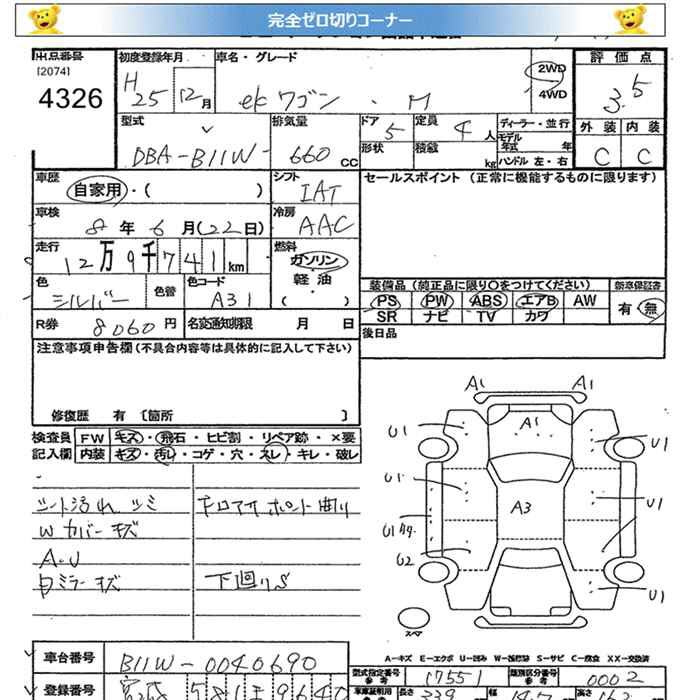 完全ゼロ切りコーナー
出品番号 初度登録年月 車名・グレード 評価点
[2074]
4326 H25 12月 ekワゴン・M 2WD 4WD 3.5
型式 排気量 ドア 定員 ディーラー・並行 外装 内装
DBA-B11W- 660 CC 5 4人 モデル年式 年 C C
形状 積載 kg ハンドル 左・右
車歴 シフト セールスポイント (正常に機能するものに限ります)
自家用・( ) IAT
車検 冷房
8年6月(22日) AAC
走行 燃料
12万9千741km ガソリン
色 色替 色コード 軽油
シルバー A31 ( )
装備品 (純正品に限り○をつけてください) 新車保証書
PS PW ABS エアB AW 有・無
SR ナビ TV カワ
R券 8060円 名変通知期限 月 日
後日品
注意事項申告欄(不具合内容等は具体的に記入して下さい)
修復歴 有 〔箇所 〕
検査員 FW キズ・飛石・ヒビ割・リペア跡・×要
記入欄 内装 キズ・汚レ・コゲ・穴・スレ・キレ・破レ
シート汚れ シミ
Wカバーキズ
A.U
ミラーキズ
下廻りS
A1 A1
A1
U1 U1
U1 A3 U1
U1
U2
U1
スペア
A-キズ E-エクボ U-凹み W-補修跡 S-サビ C-腐食 XX-交換済
車台番号 B11W-0040690
型式指定番号 17551 類別区分番号 0002
登録番号 581
長さ 339 幅 147 高さ